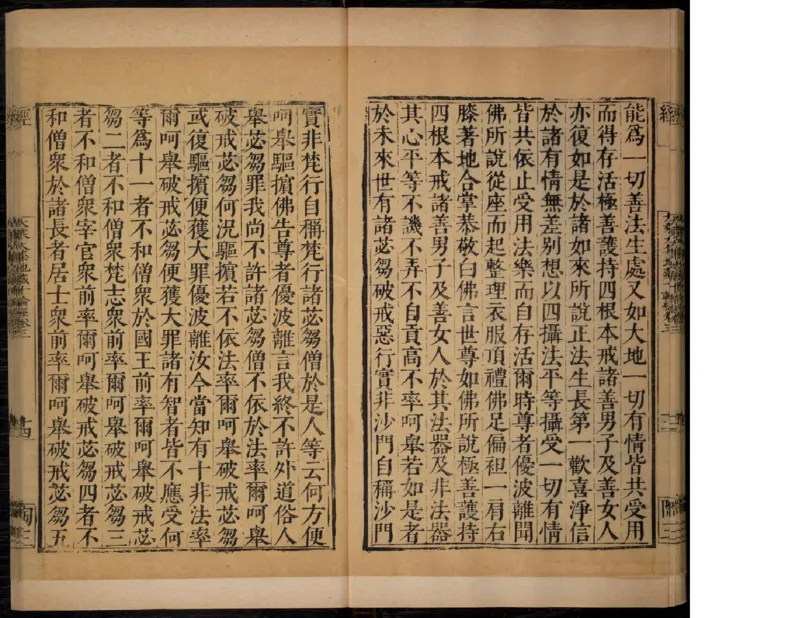 能爲一切善法生處又如大地一切有情皆共受用
而得存活極善護持四根本戒諸善男子及善女人
亦復如是於諸如來所說正法生長第一歡喜淨信
於諸有情無差別想以四攝法平等攝受一切有情
皆共依止受用法樂而自存活爾時尊者優波離聞
佛所說從座而起整理衣服頂禮佛足偏袒一肩右
膝著地合掌恭敬白佛言世尊如佛所說極善護持
四根本戒諸善男子及善女人於其法器及非法器
其心平等不譏不弄不自貢高不率呵舉若如是者
於未來世有諸苾芻破戒惡行實非沙門自稱沙門
實非梵行自稱梵行諸苾芻僧於是人等云何方便
呵舉驅擯佛告尊者優波離言我終不許外道俗人
舉苾芻罪我尚不許諸苾芻僧不依於法率爾呵舉
破戒苾芻何況驅擯若不依法率爾呵舉破戒苾芻
或復驅擯便獲大罪優波離汝今當知有十非法率
爾呵舉破戒苾芻便獲大罪諸有智者皆不應受何
等爲十一者不和僧衆於國王前率爾呵舉破戒苾
芻二者不和僧衆梵志衆前率爾呵舉破戒苾芻三
者不和僧衆宰官衆前率爾呵舉破戒苾芻四者不
和僧衆於諸長者居士衆前率爾呵舉破戒苾芻五